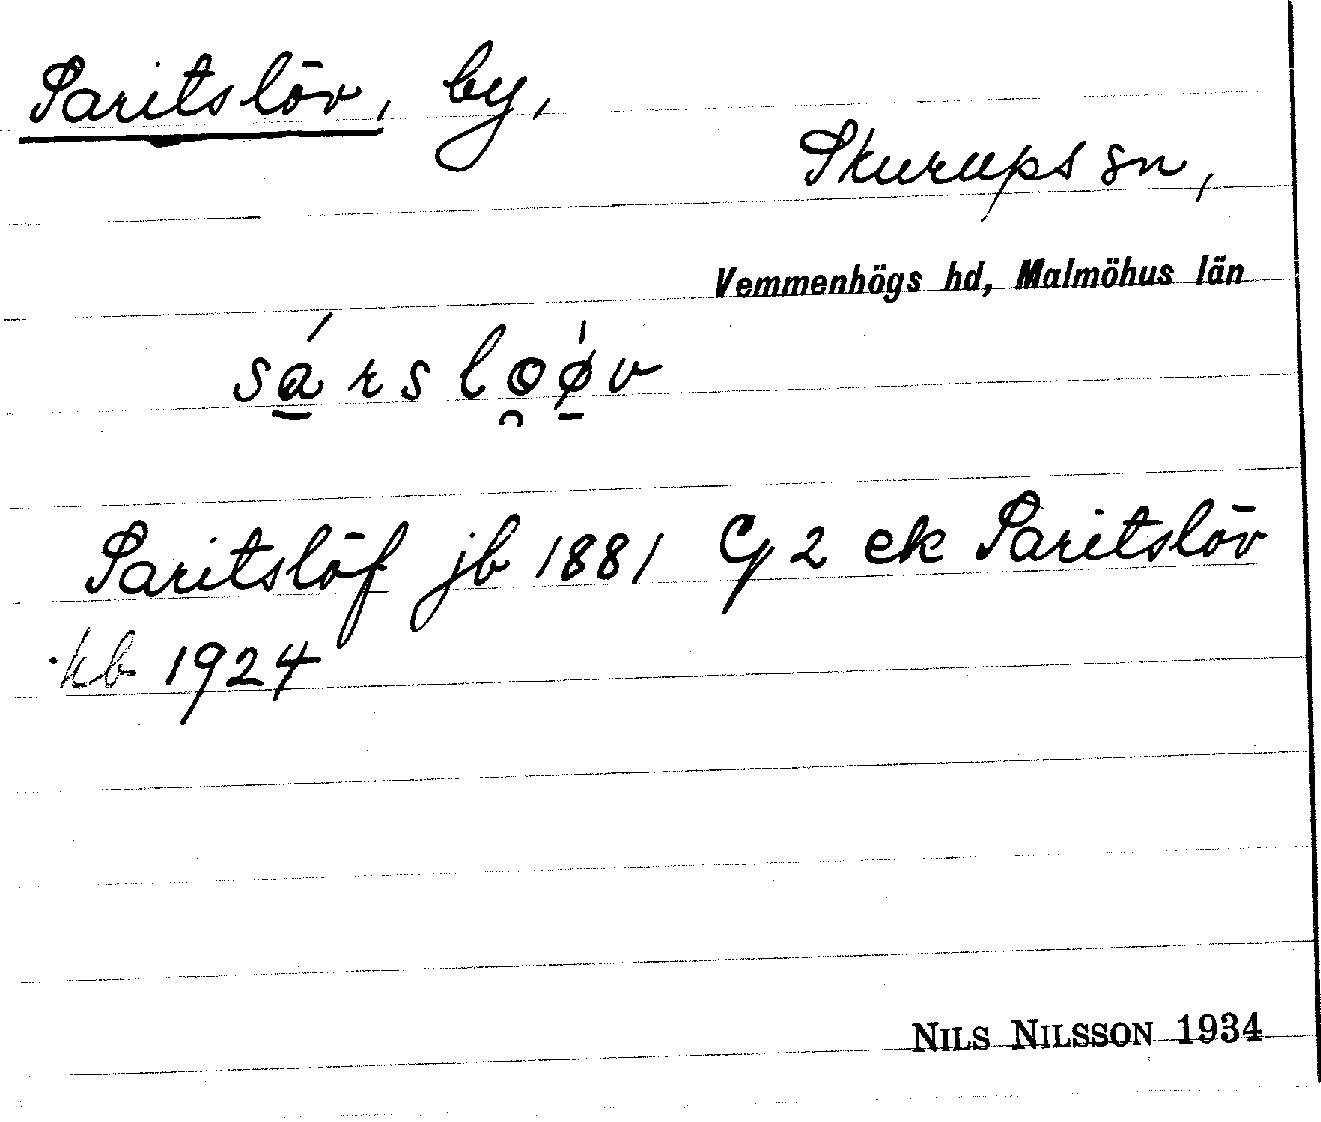 Saritslöv, by,
Skurups sn,
Vemmenhögs hd, Malmöhus län
sá̲rslo̯ǿ̲v
Saritslöf jb 1881 Cy 2 ek Saritslöv
kb 1924
NILS NILSSON 1934